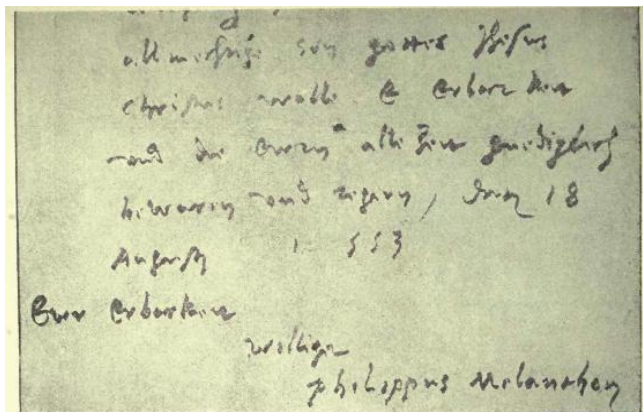 allmechtige son gottes Jhesus
christus wolle E Erbarkeit
vnd die Ewrn alle Zeit gnediglich
bewaren vnd regirn, den 18
Augusti 1553
Ewr Erbarkeit
williger
philippus Melanthon